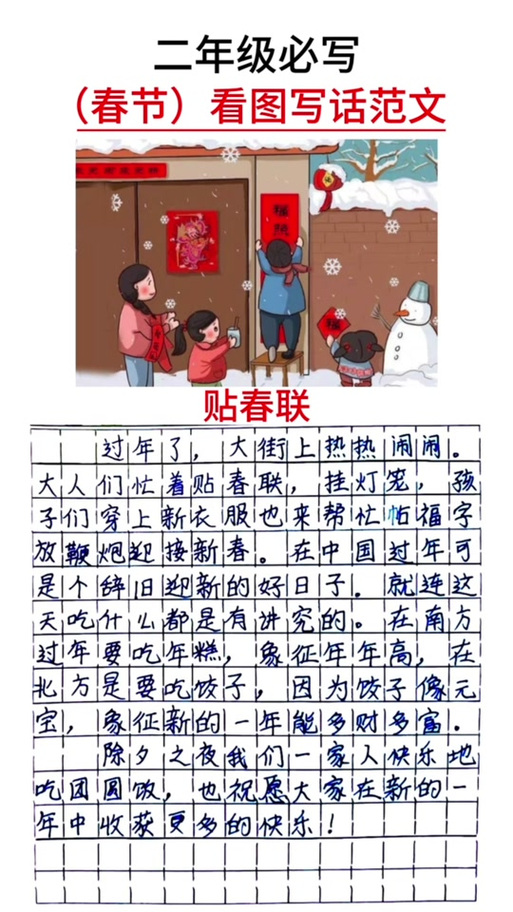 二年级必写
（春节）看图写话范文
福
贴春联
过年了，大街上热热闹闹。
大人们忙着贴春联，挂灯笼，孩
子们穿上新衣服也来帮忙帖福字
放鞭炮迎接新春。在中国过年可
是个辞旧迎新的好日子。就连这
天吃什么都是有讲究的。在南方
过年要吃年糕，象征年年高，在
北方是要吃饺子，因为饺子像元
宝，象征新的一年能多财多富。
除夕之夜我们一家人快乐地
吃团圆饭，也祝愿大家在新的一
年中收获更多的快乐！